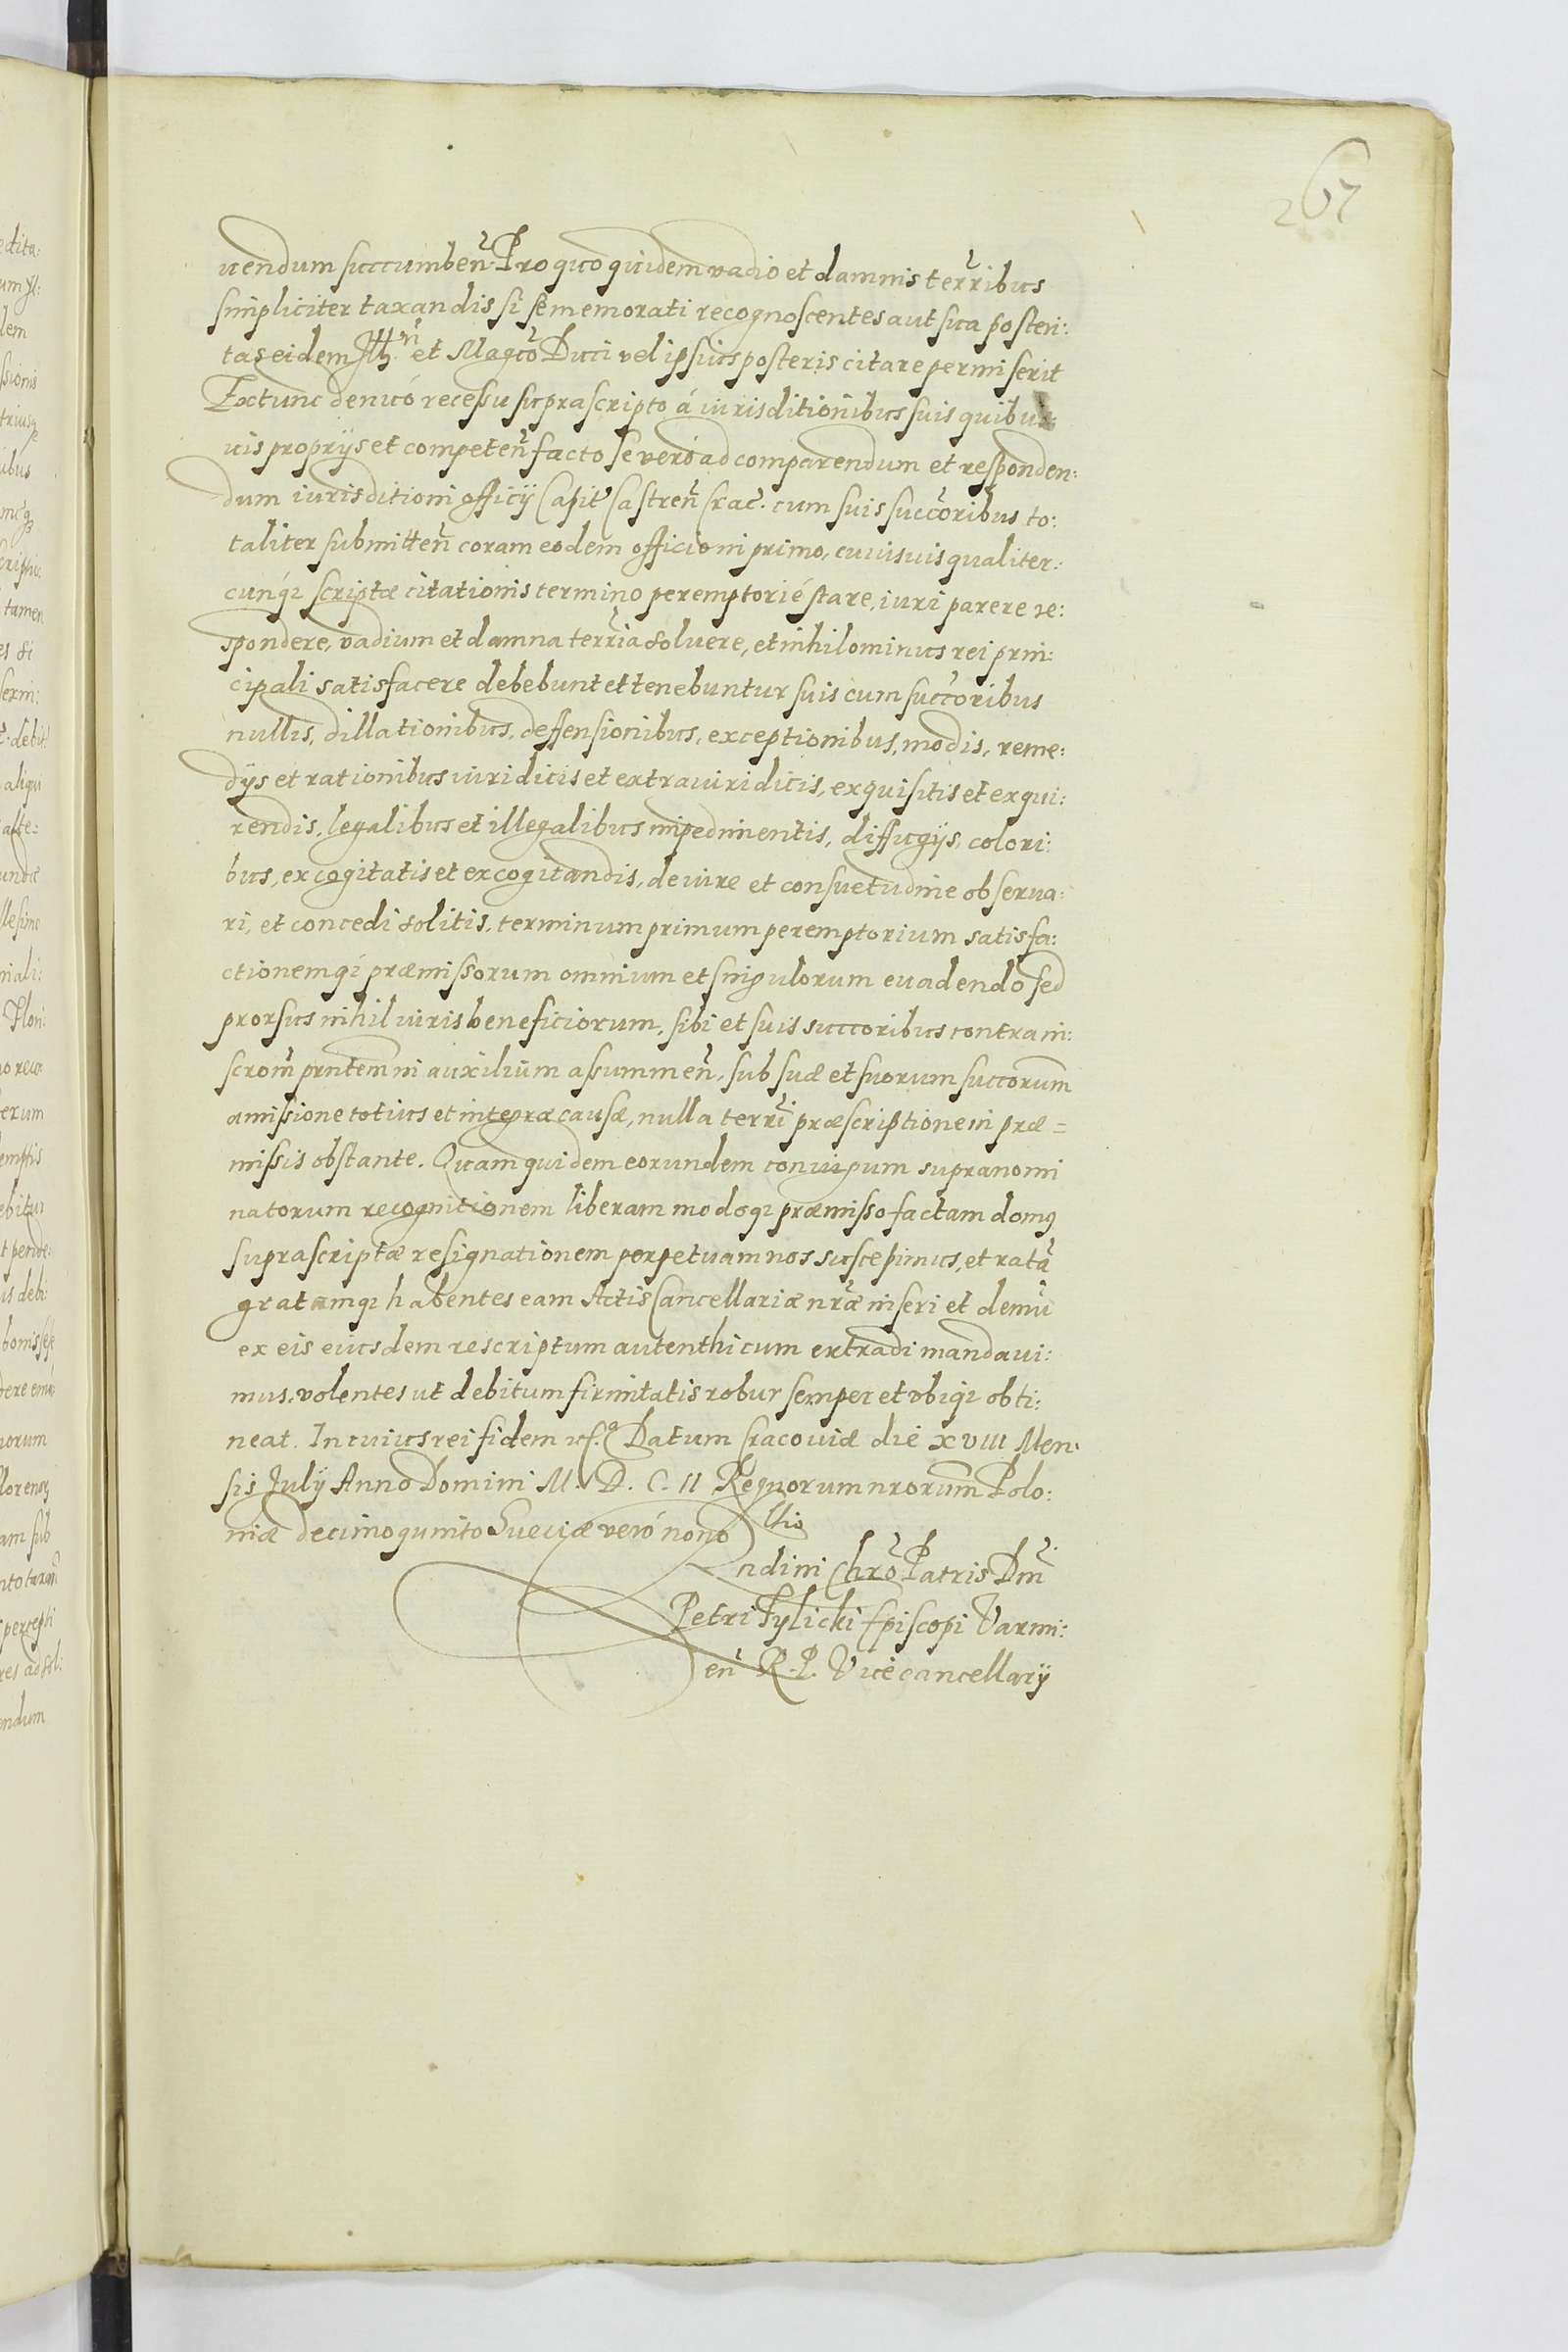 267
uendum succumben̄. Pro quo quidem vadio et damnis terr̄ibus
simpliciter taxandis si se memorati recognoscentes aut sua posteri:
tas eidem et Magco Duci vel ipsius posteris citare permiserit
Extunc denuó recessu suprascripto á iurisditionibus suis quibus
uis proprijs et competen̄ facto se veró ad comparendum et responden:
dum iurisditioni officij Capit̄ Castren̄ Crac̄. cum suis succ̄oribus to:
taliter submitten̄ coram eodem officio in primo, cuiusuis qualiter:
cunq; scriptæ citationis termino peremptorié stare, iuri parere re:
spondere, vadium et damna terr̄ia soluere, et nihilominus rei prin:
cipali satisfacere debebunt et tenebuntur suis cum succ̄oribus
nullis, dillationibus, deffensionibus, exceptionibus, modis, reme:
dijs et rationibus iuridicis et extraiuridicis, exquisitis et exqui:
rendis, legalibus et illegalibus impedimentis, diffugijs, colori:
bus, excogitatis et excogitandis, de iure et consuetudine obserua:
ri, et concedi solitis, terminum primum peremptorium satisfa:
ctionemq; præmissorum omnium et singulorum euadendo sed
prorsus nihil iuris beneficiorum, sibi et suis succoribus contra in:
scrom̄ prntem̄ in auxilium assummen̄, sub suæ et suorum succorum̄
amissione totius et integræ causæ, nulla terr̄i præscriptione in præ=
missis obstante. Quam quidem eorundem coniugum supranomi
natorum recognitionem liberam modoq; præmisso factam domus
suprascriptæ resignationem perpetuam nos suscepimus, et ratā
gratamq; habentes eam Actis Cancellariæ nr̄æ inseri et demū
ex eis eiusdem rescriptum autenthicum extradi mandaui:
mus, volentes ut debitum firmitatis robur semper et vbiq; obti:
neat. In cuius rei fidem Datum Cracouiæ die XVIII Men:
sis Julij Anno Domini M. D. C. II Regnorum nrorum̄ Polo:
niæ decimoquinto Sueciæ veró nono
ndini Chrō Patris Dm̄
Petri Tylicki Episcopi Varmi:
en̄ R. P. Vicecancellarij